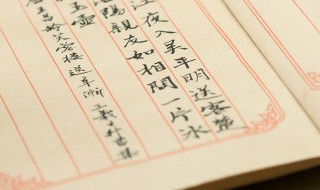 江夜入吴平明送客楚
陽親友如相問一片冰
玉壺
王昌齡芙蓉樓送辛漸